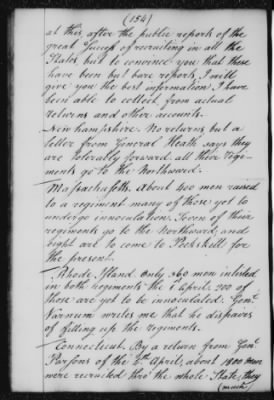 (154)
at this, after the public reports of the
great success of recruiting in all the
States, but to convince you that these
have been but bare reports, I will
give you the best information I have
been able to collect from actual
returns and other accounts.
New hampshire. No returns, but a
letter from General Heath says they
are tolerably forward. all their regi-
ments go to the Northward.
Massachusetts. About 400 men raised
to a regiment many of those yet to
undergo innoculation. Seven of their
regiments go to the Northward, and
eight are to come to Peekskill for
the present.
Rhode Island. Only 360 men inlisted
in both regiments the 1st April. 200 of
those are yet to be innoculated. Genl.
Varnum writes me that he dispairs
of filling up the regiments.
Connecticut. By a return from Genl.
Parsons of the 6th April, about 1800 men
were recruited thro' the whole State, they
(much)